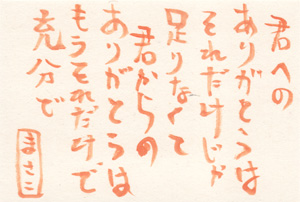 君への
ありがとうは
それだけじゃ
足りなくて
君からの
ありがとうは
もうそれだけで
充分で
まさこ